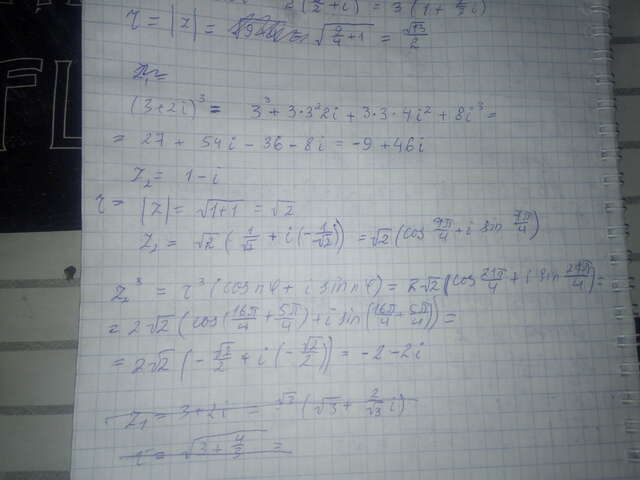 2(3/2 + i) = 3(1 + 2/3 i)
r = |z| = √(9/4 + 1) = √13/2
(3+2i)³ = 3³ + 3·3²2i + 3·3·4i² + 8i³ =
= 27 + 54i - 36 - 8i = -9 + 46i
z₂ = 1 - i
r = |z| = √(1+1) = √2
z₂ = √2 (1/√2 + i(-1/√2)) = √2 (cos 7π/4 + i sin 7π/4)
z₂³ = r³(cos nφ + i sin nφ) = 2√2 (cos 21π/4 + i sin 21π/4) =
= 2√2 (cos(16π/4 + 5π/4) + i sin(16π/4 + 5π/4)) =
= 2√2 (-√2/2 + i(-√2/2)) = -2 - 2i
z₁ = 3 + 2i = √3 (√3 + 2/√3 i)
r = √(3 + 4/3) =